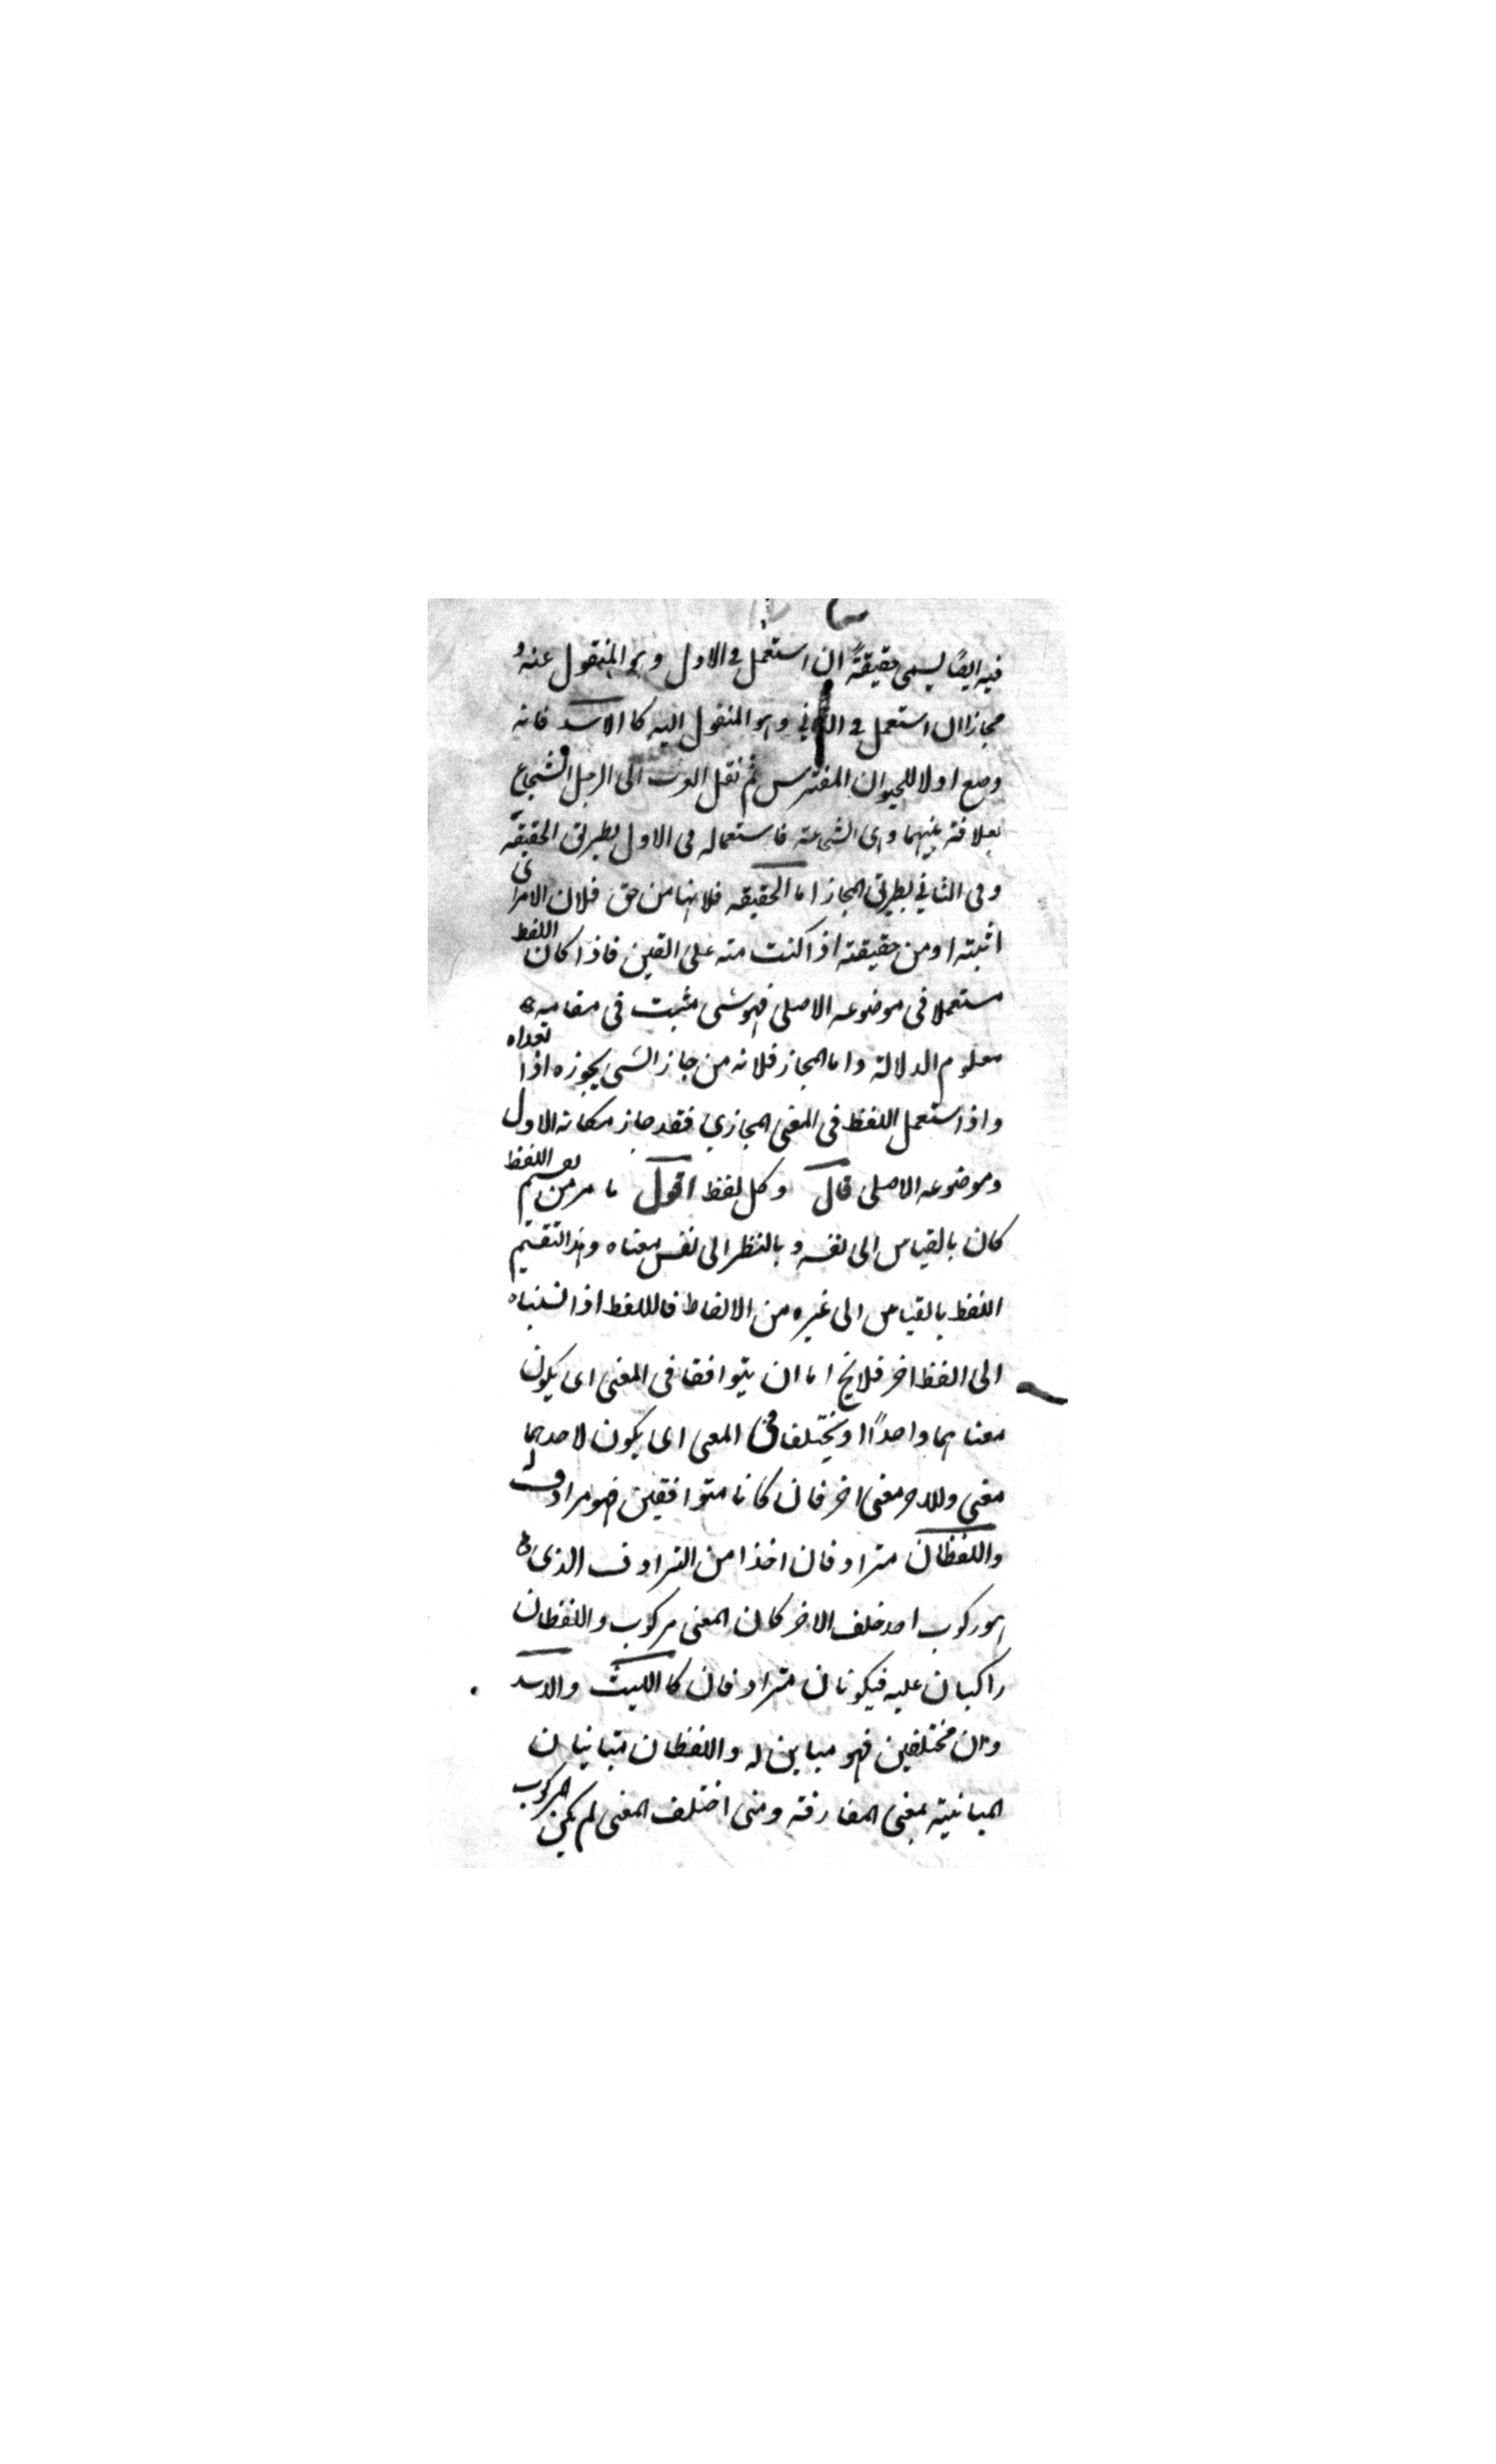 فيه ايضًا ليسمى حقيقةً ان استعمل في الاول وهو المنقول عنه و
مجازا ان استعمل في الثاني وهو المنقول اليه كالاسد فانه
وضع اولا للحيوان المفترس ثم نقل الى الرجل الشجاع
بعلاقة بينهما وهى الشجاعة فاستعماله فى الاول بطريق الحقيقة
وفى الثاني بطريق المجاز اما الحقيقه فلانها من حق فلان الامر اى
اثبته او من حقيقته اذا كنت منه على اليقين فاذا كان اللفظ
مستعملا فى موضوعه الاصلى فهو شى مثبت فى مقامه
معلوم الدلالة واما المجاز فلانه من جاز الشى يجوزه اذا تعداه
واذا ستعمل اللفظ فى المعنى المجازي فقد جاز مكانه الاول
وموضوعه الاصلى قال وكل لفظ اقول ما مر من تقسيم اللفظ
كان بالقياس الى نفسه و بالنظر الى نفس معناه وهذا التقسيم
اللفظ بالقياس الى غيره من الالفاظ فاللفظ اذا نسبناه
الى الفظ اخر فلايخ اما ان يتوافقا فى المعنى اى يكون
معناهما واحدًا او يختلفا فى المعنى اى يكون لاحدهما
معنى وللاخر معنى اخر فان كانا متوافقين فهو مرادف له
واللفظان مترادفان اخذا من الترادف الذى
هو ركوب احد خلف الاخر كان المعنى مركوب واللفظان
راكبان عليه فيكونان مترادفان كالليث والاسد
وان مختلفين فهو مباين له واللفظان متباينان
المباينة بمعنى المفارقة ومتى اختلف المعنى لم يكن المركوب